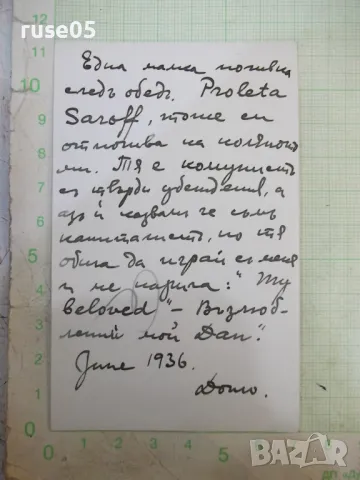 ruse05
Една малка почивка
следъ обедъ. Proleta
Saroff, тоже си
отпочива на колѣното
ми. Тя е комунистъ
съ твърди убеждения, а
азъ ѝ казвамъ че съмъ
капиталистъ, но тя
обича да играй съ мене
и ме нарича: "My
beloved" – Възлюб-
лений мой Дан".
June 1936.
Домо.
bazar.bg